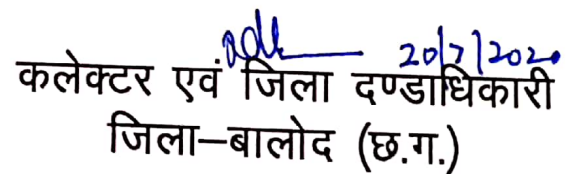 20/7/2020
कलेक्टर एवं जिला दण्डाधिकारी
जिला–बालोद (छ.ग.)